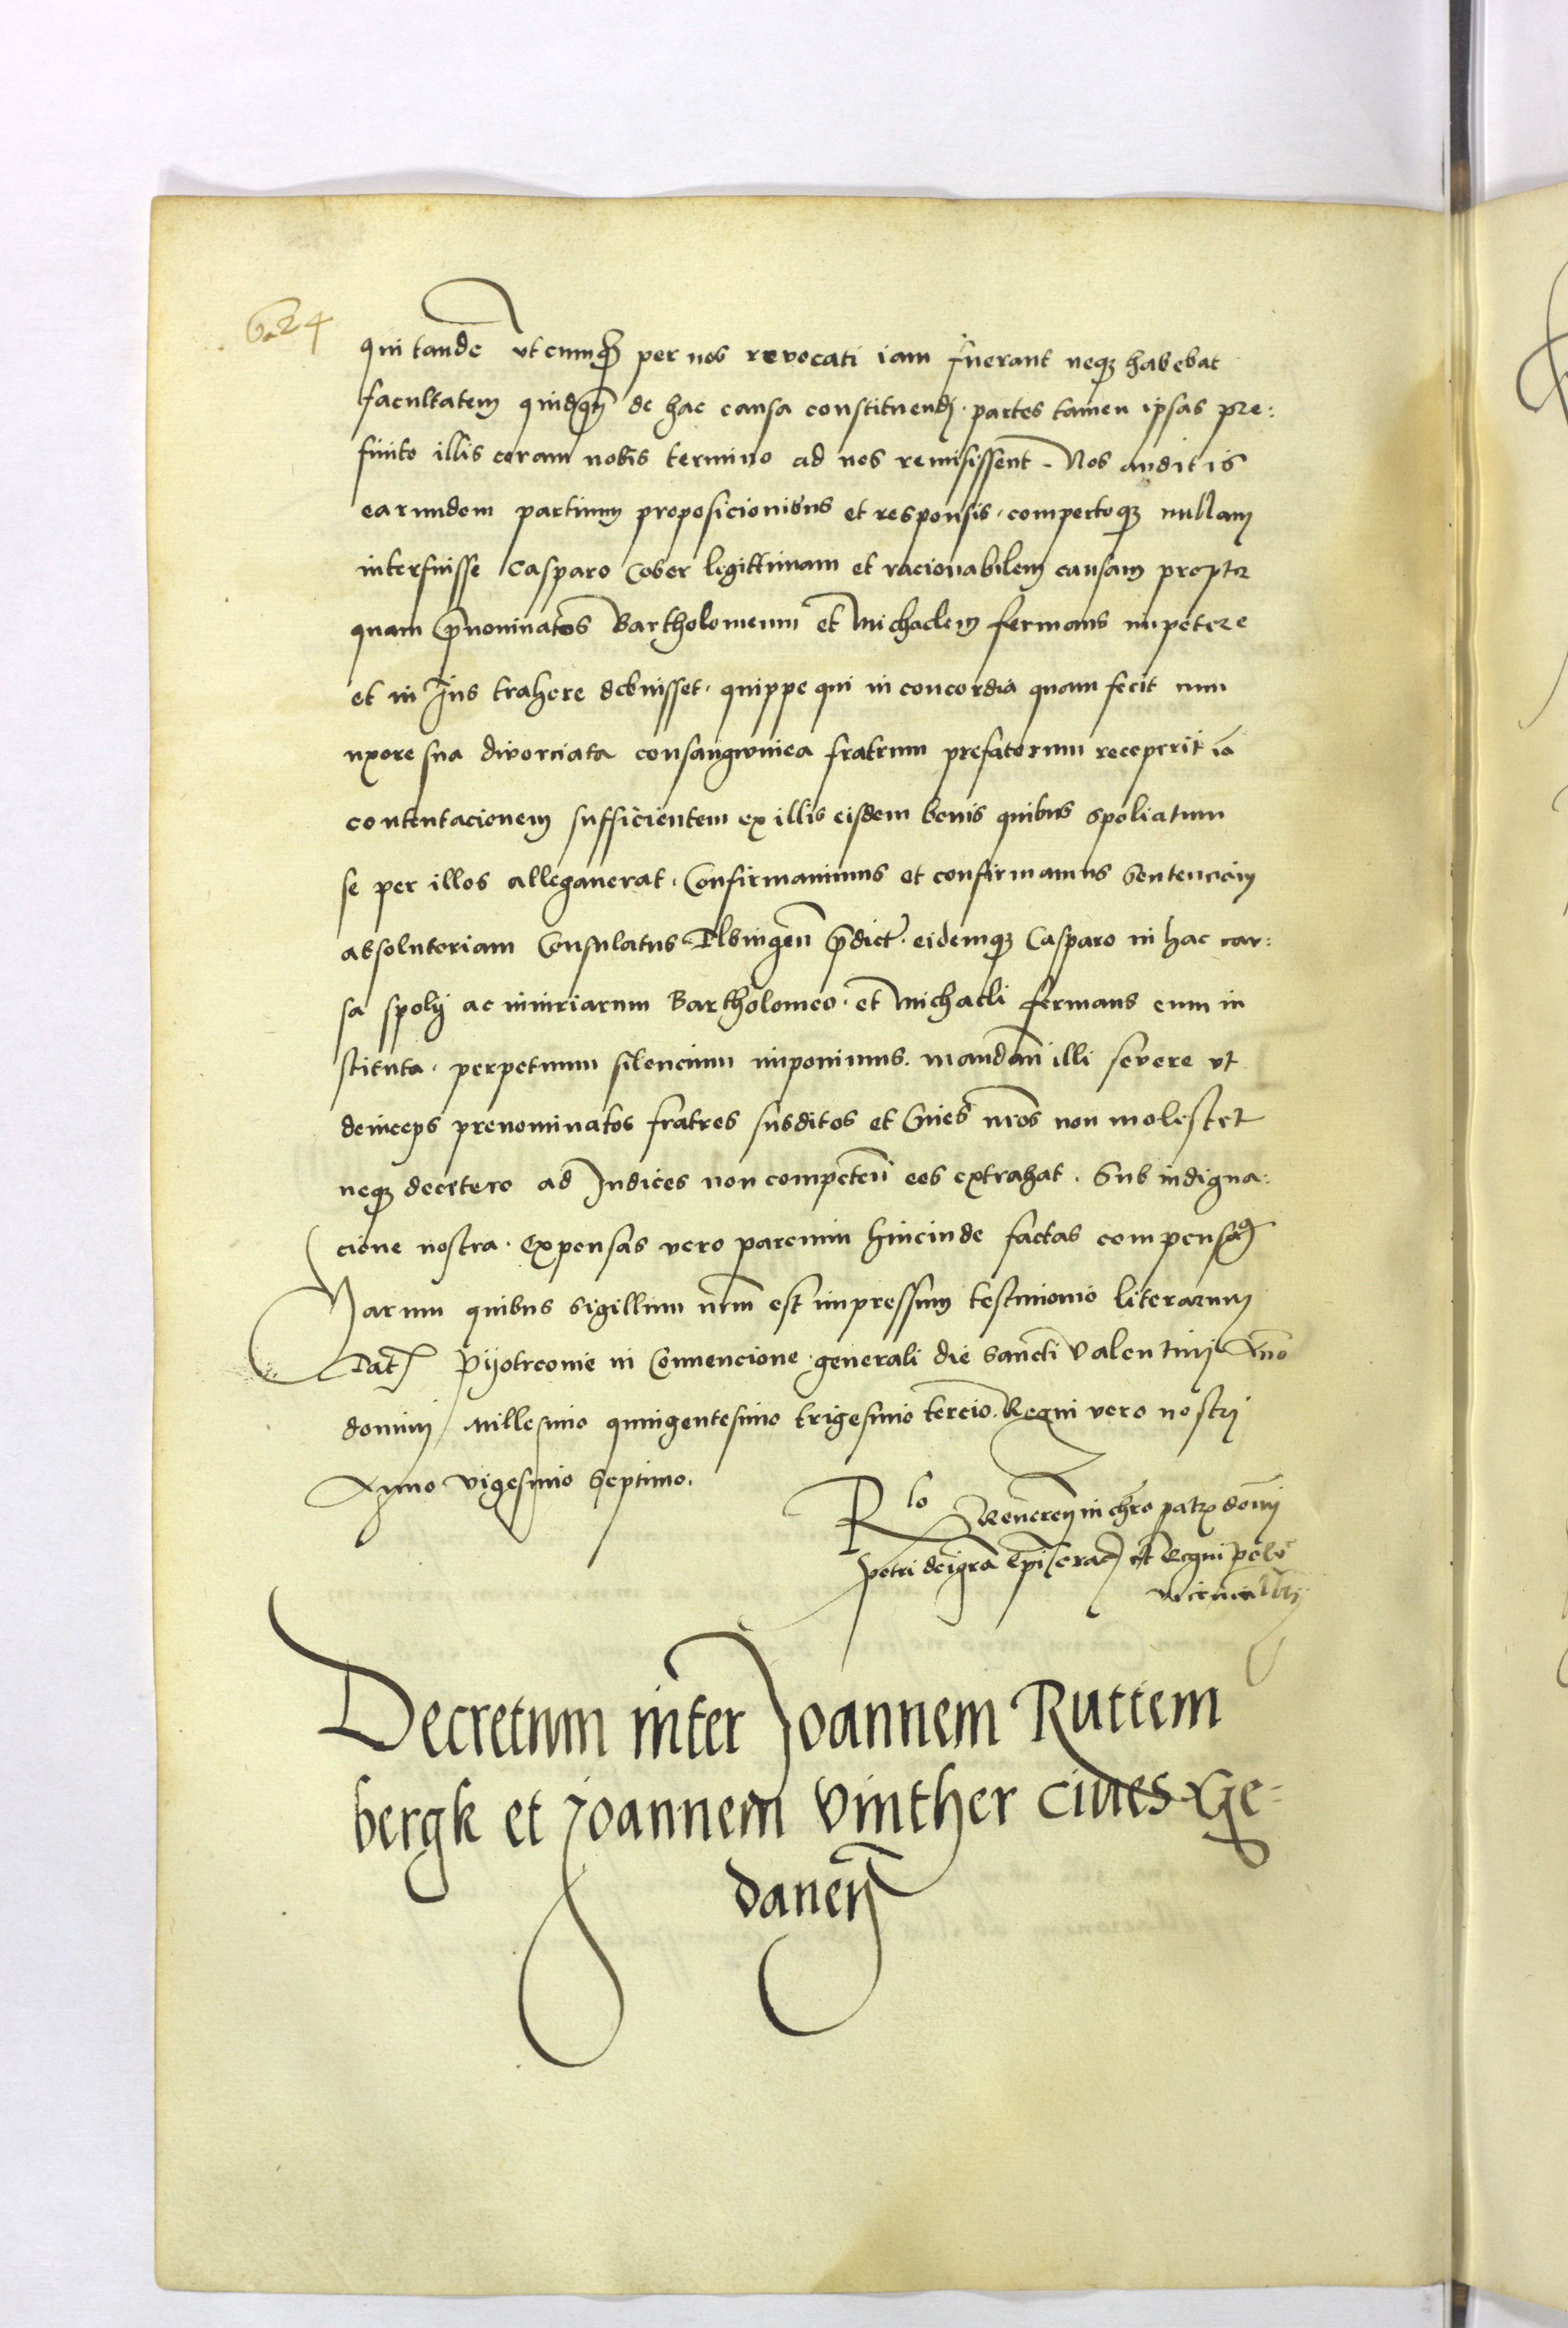 624
qui tandē vtcumq̄ per nos revocati iam fuerant neq3 habebāt
facultatem quidq̄3 de hac causa constituendj · partes tamen ipsas pre:
finito illis coram nobis termino ad nos remisissent. Nos auditis
earundem partium proposicionibus et responsis · compertoq3 nullam
interfuisse Casparo Cober legittimam et racionabilem causam propter
quam p̄nominatos Bartholomeum et Michaelem fermans impetere
et in Jus trahere debuisset · quippe qui in concordia quam fecit cum
uxore sua divorciata consangwinea fratrum prefatorum receperit iā
contentacionem sufficientem ex illis eisdem bonis quibus spoliatum
se per illos allegauerat · Confirmauimus et confirmamus Sentenciam
absolutoriam Consulatus Elbingen̄ p̄dict · eidemq3 Casparo in hac cau:
sa spolij ac iniuriarum Bartholomeo · et Michaeli fermans cum in
stituta · perpetuum silencium imponimus. mandan̄ illi severe vt
deinceps prenominatos fratres subditos et Ciues nr̄os non molestet
neq3 decetero ad Judices non competen̄ eos extrahat · Sub indigna:
cione nostra · Expensas vero parcium hincinde factas compensan̄
Harum quibus sigillum nr̄m est impressum testimonio literarum
Dat Pijotrconie in Conuencione generali die Sancti Valentinj Anō
dominj Millesimo quingentesimo trigesimo tercio. Regni vero nostrj
Anno vigesimo Septimo.
Rlo Reueren̄ in chr̄o patr domī
petri dei gr̄a Ep̄i Crac et Regni polo
vicecancellrij
Decretum inter Joannem Ruttem
bergk et Joannem Vinther ciues Ge=
danen̄